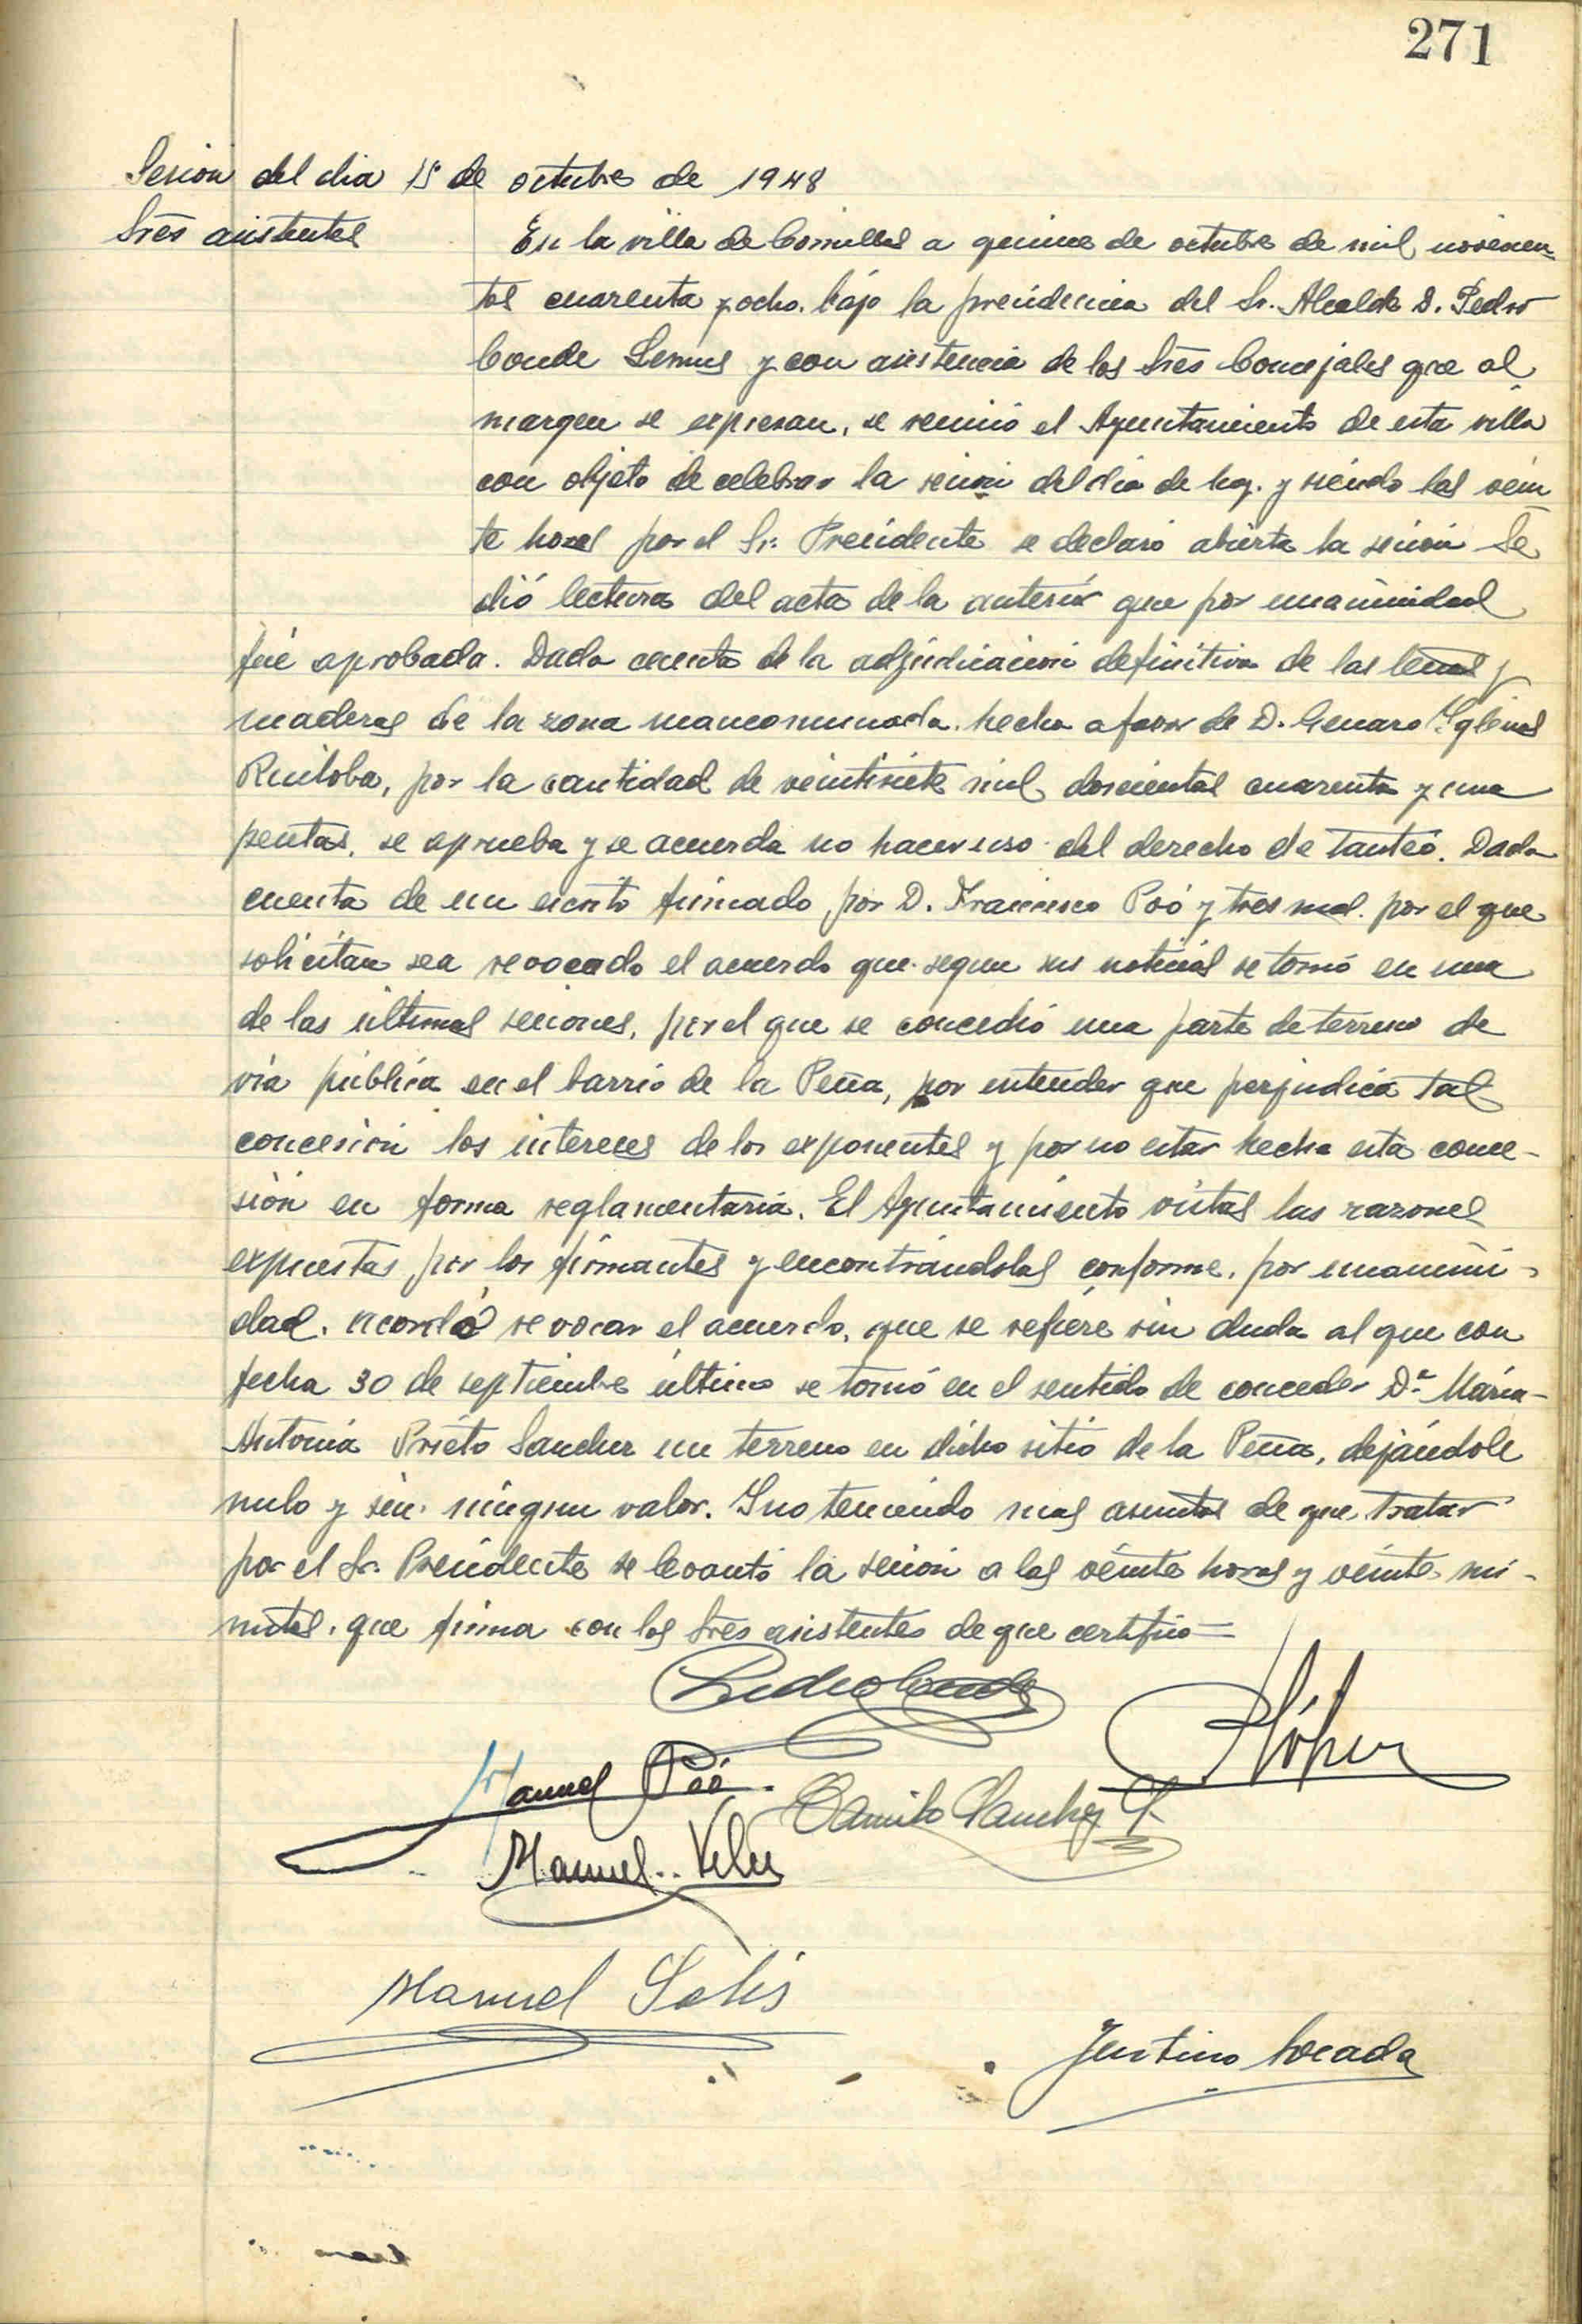 271
Sesion del dia 15 de octubre de 1948
Sres asistentes
En la villa de Comillas a quince de octubre de mil novecien-
tos cuarenta y ocho. bájo la presidencia del Sr. Alcalde D. Pedro
Conde Lemus y con asistencia de los Sres Concejales que al
margen se expresan, se reunió el Ayuntamiento de esta villa
con objeto de celebrar la sesion del dia de hoy. y siéndo las vein
te horas por el Sr. Presidente se declaró abierta la sesión Se
dió lectura del acta de la anteriór que por unanimidad
fué aprobada. Dada cuenta de la adjudicacion definitiva de las leñas y
maderas de la zona mancomunada. hecha a favor de D. Genaro Yglesias
Ruiloba, por la cantidad de veintisiete mil doscientas cuarenta y una
pesetas, se aprueba y se acuerda no hacer uso del derecho de tanteó. Dada
cuenta de un escrito firmado por D. Francisco Poó y tres mas. por el que
solicitan sea revocado el acuerdo que segun sus noticias se tomó en una
de las últimas sesiones, por el que se concedió una parte de terreno de
via pública en el barrio de la Peña, por entender que perjudica tal
concesión los intereses de los exponentes y por no estar hecha esta conce-
sión en forma reglamentaria. El Ayuntamiento vistas las razones
expuestas por los firmantes y encontrándolas conforme, por unanimi-
dad. acordó revocar el acuerdo, que se refiére sin duda al que con
fecha 30 de septiembre último se tomó en el sentido de conceder Dª María-
Antonia Priéto Sanchez un terreno en dicho sitio de la Peña, dejándole
nulo y sin ningun valor. Y no teniendo mas asuntos de que tratar
por el Sr. Presidente se levantó la sesion a las veinte horas y veinte mi-
nutos, que firma con los Sres asistentes de que certifico=
Pedro Conde
Manuel Poó.
Camilo Sanchez
Manuel Velez
Manuel Solis
Justino Locada